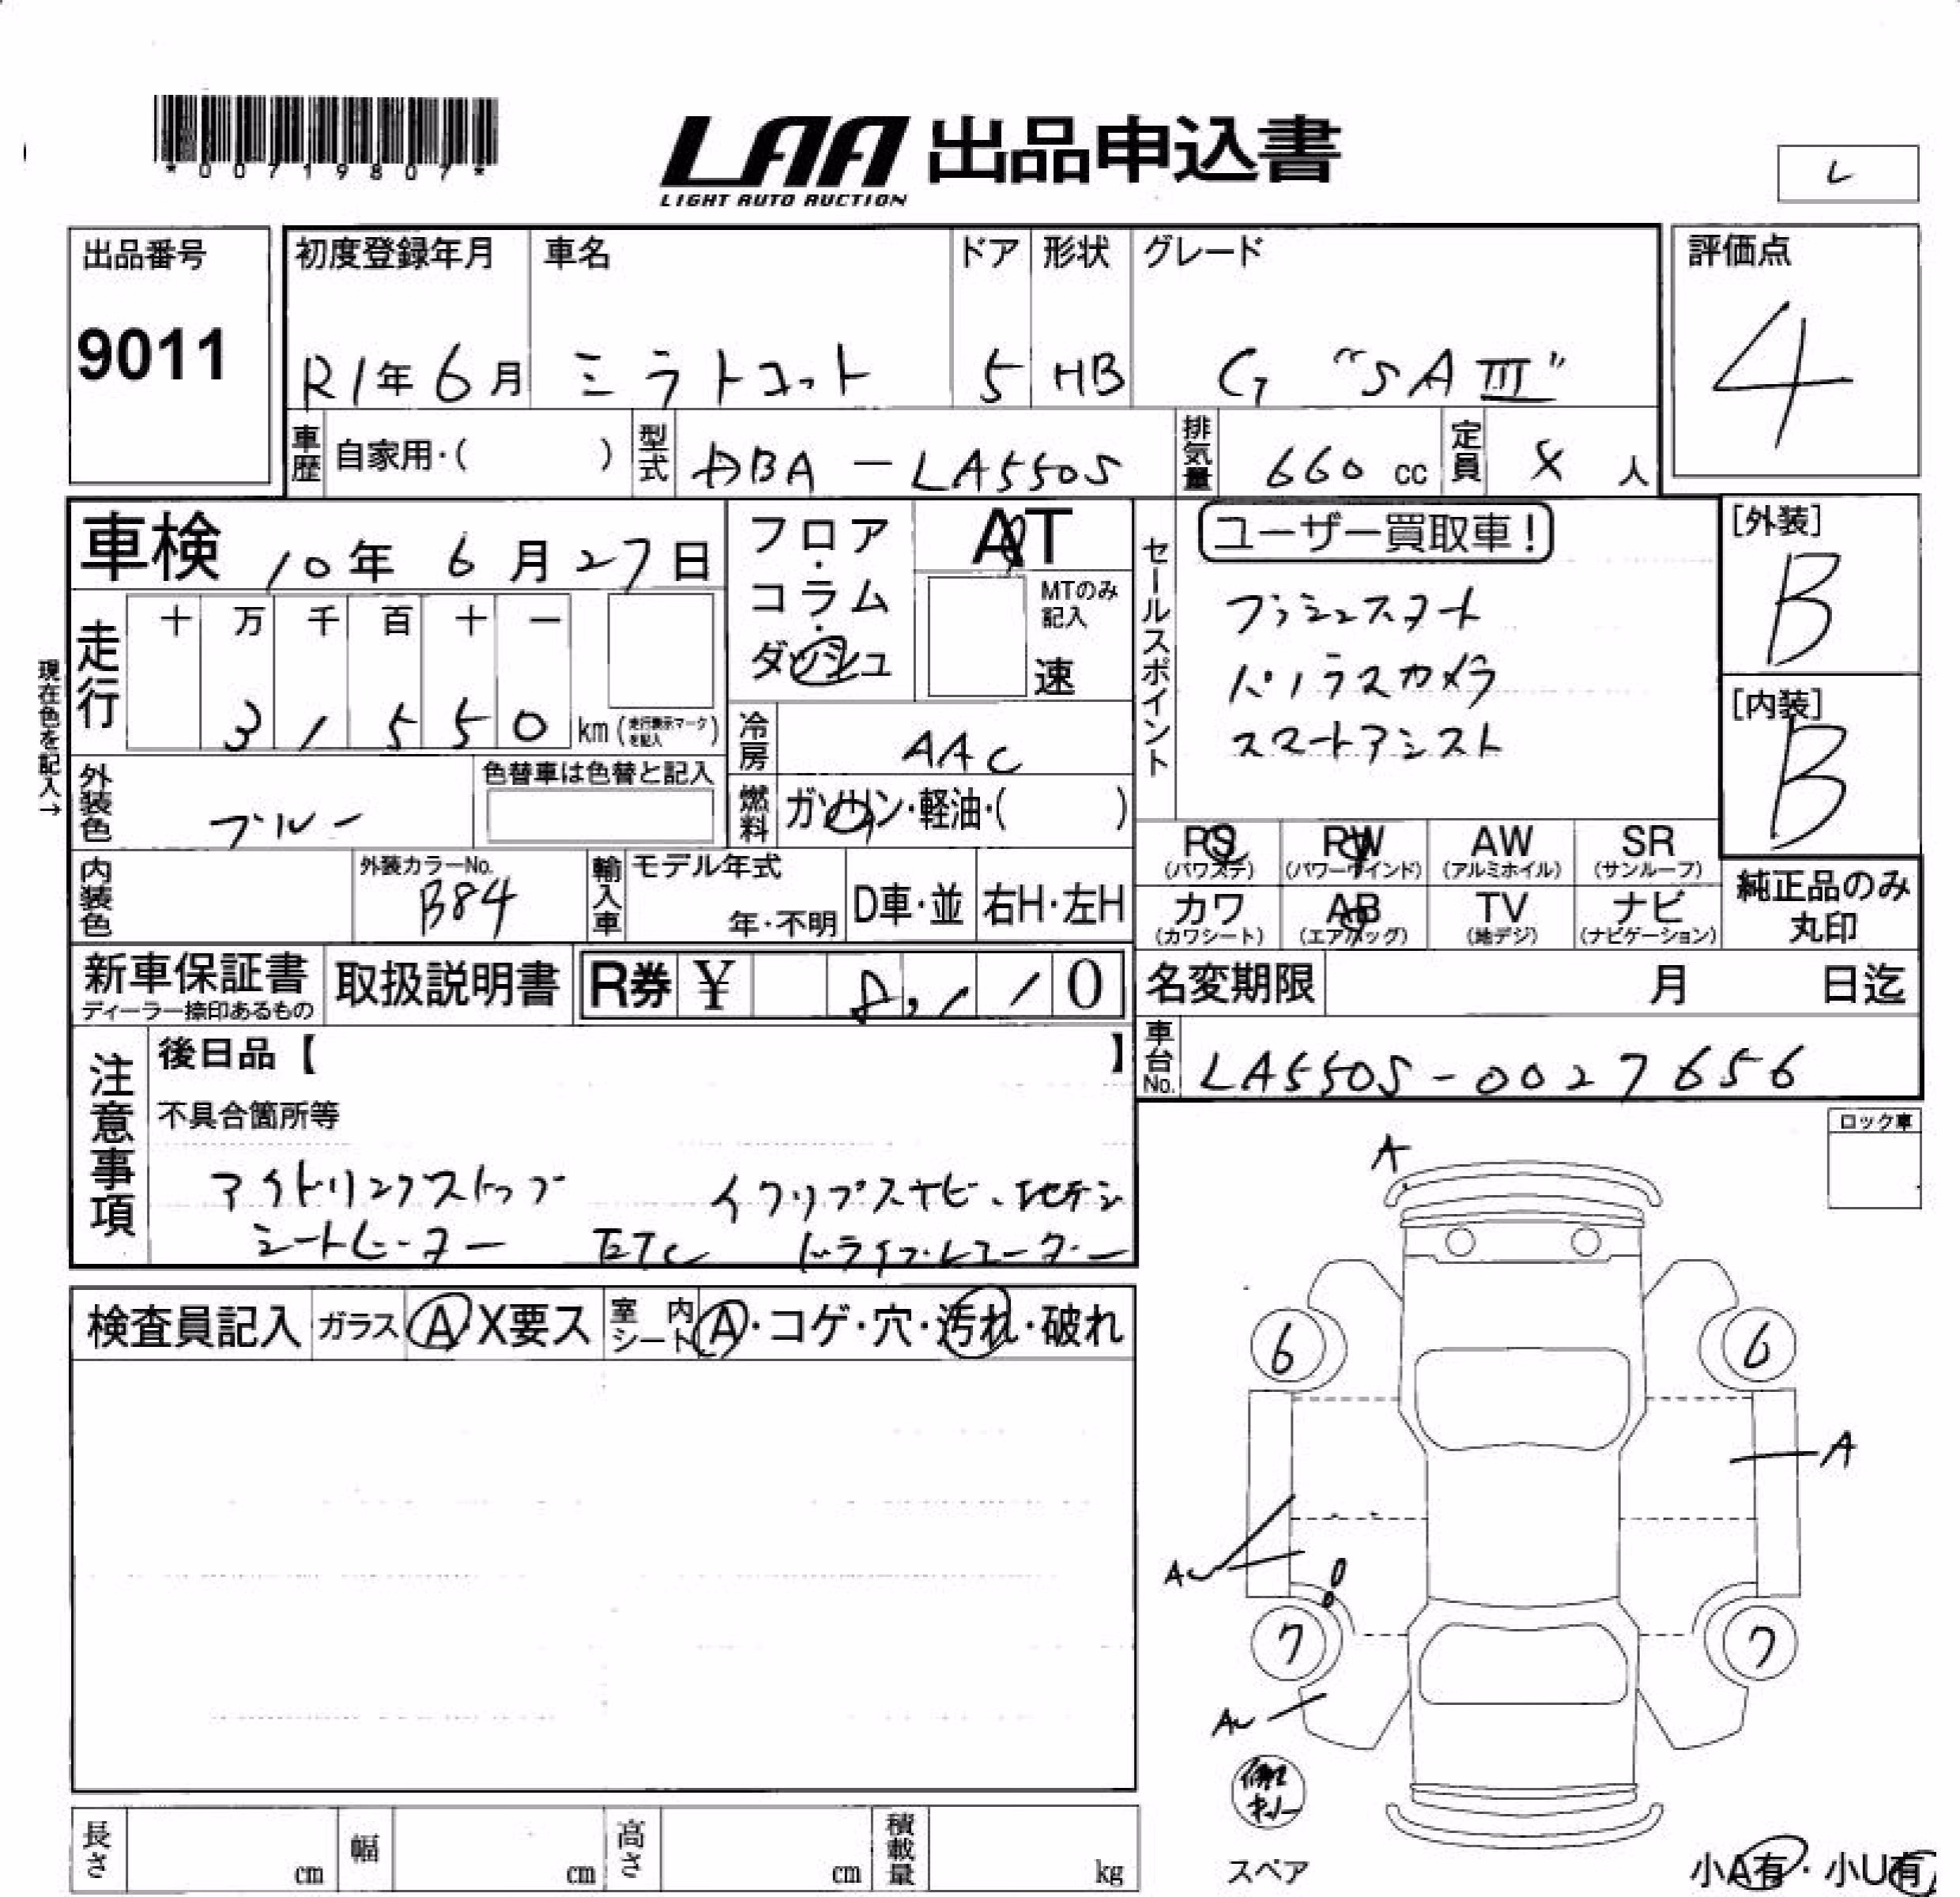 *00719807*
LAA 出品申込書
LIGHT AUTO AUCTION
レ
出品番号
9011
初度登録年月 車名 ドア 形状 グレード
R1年6月 ミラトコット 5 HB G "SAⅢ"
評価点
4
車歴 自家用・( ) 型式 DBA-LA550S 排気量 660 cc 定員 4 人
車検 10年 6月 27日
フロア・コラム・ダッシュ
AT
MTのみ記入
速
セールスポイント
ユーザー買取車!
プッシュスタート
パノラマカメラ
スマートアシスト
[外装]
B
[内装]
B
現在色を記入→
走行 十 万 千 百 十 一
3 1 5 5 0 km (走行表示マークを記入)
冷房 AAC
外装色 ブルー 色替車は色替と記入
燃料 ガソリン・軽油・( )
PS PW AW SR
(パワステ) (パワーウインド) (アルミホイル) (サンルーフ)
カワ AB TV ナビ
(カワシート) (エアバッグ) (地デジ) (ナビゲーション)
純正品のみ
丸印
内装色 外装カラーNo. B84 輸入車 モデル年式 年・不明 D車・並 右H・左H
新車保証書 取扱説明書 R券 ¥ 0
ディーラー捺印あるもの
名変期限 月 日迄
車台No. LA550S-0027656
注意事項
後日品【 】
不具合箇所等
アイドリングストップ イクリプスナビ・地デジ
シートヒーター ETC ドライブレコーダー
ロック車
検査員記入 ガラス A X要ス 室内シート A・コゲ・穴・汚れ・破れ
A
6 6
A
A
7 7
A
スペア
長さ cm 幅 cm 高さ cm 積載量 kg
小A有・小U有